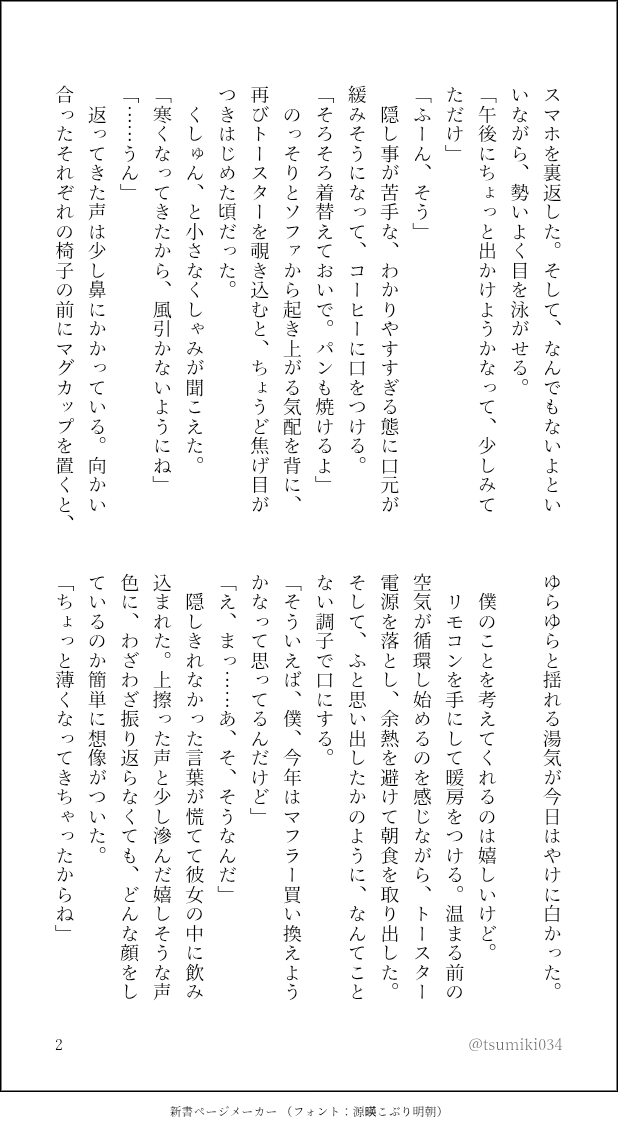 スマホを裏返した。そして、なんでもないよとい
いながら、勢いよく目を泳がせる。
「午後にちょっと出かけようかなって、少しみて
ただけ」
「ふーん、そう」
　隠し事が苦手な、わかりやすすぎる態に口元が
緩みそうになって、コーヒーに口をつける。
「そろそろ着替えておいで。パンも焼けるよ」
　のっそりとソファから起き上がる気配を背に、
再びトースターを覗き込むと、ちょうど焦げ目が
つきはじめた頃だった。
　くしゅん、と小さなくしゃみが聞こえた。
「寒くなってきたから、風引かないようにね」
「……うん」
　返ってきた声は少し鼻にかかっている。向かい
合ったそれぞれの椅子の前にマグカップを置くと、
ゆらゆらと揺れる湯気が今日はやけに白かった。
　僕のことを考えてくれるのは嬉しいけど。
　リモコンを手にして暖房をつける。温まる前の
空気が循環し始めるのを感じながら、トースター
電源を落とし、余熱を避けて朝食を取り出した。
そして、ふと思い出したかのように、なんてこと
ない調子で口にする。
「そういえば、僕、今年はマフラー買い換えよう
かなって思ってるんだけど」
「え、まっ……あ、そ、そうなんだ」
　隠しきれなかった言葉が慌てて彼女の中に飲み
込まれた。上擦った声と少し滲んだ嬉しそうな声
色に、わざわざ振り返らなくても、どんな顔をし
ているのか簡単に想像がついた。
「ちょっと薄くなってきちゃったからね」
2
@tsumiki034
新書ページメーカー （フォント：源暎こぶり明朝）